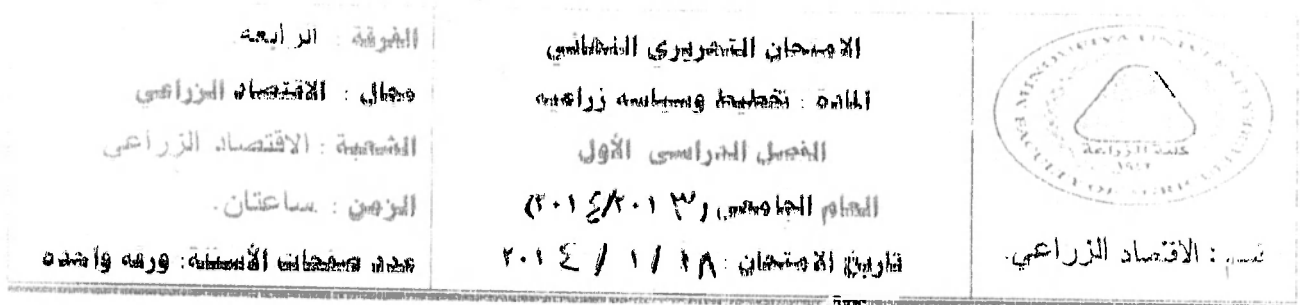 MINOUFIYA UNIVERSITY
كلية الزراعة
FACULTY OF AGRICULTURE
قسم : الاقتصاد الزراعي.
الامتحان التحريري النهائي
المادة : تخطيط وسياسه زراعيه
الفصل الدراسى الأول
العام الجامعى (٢٠١٣/٢٠١٤)
تاريخ الامتحان : ١٨ / ١ / ٢٠١٤
الفرقة : الرابعه
مجال : الاقتصاد الزراعي
الشعبة : الاقتصاد الزراعي
الزمن : ساعتان.
عدد صفحات الأسئلة: ورقه واحده